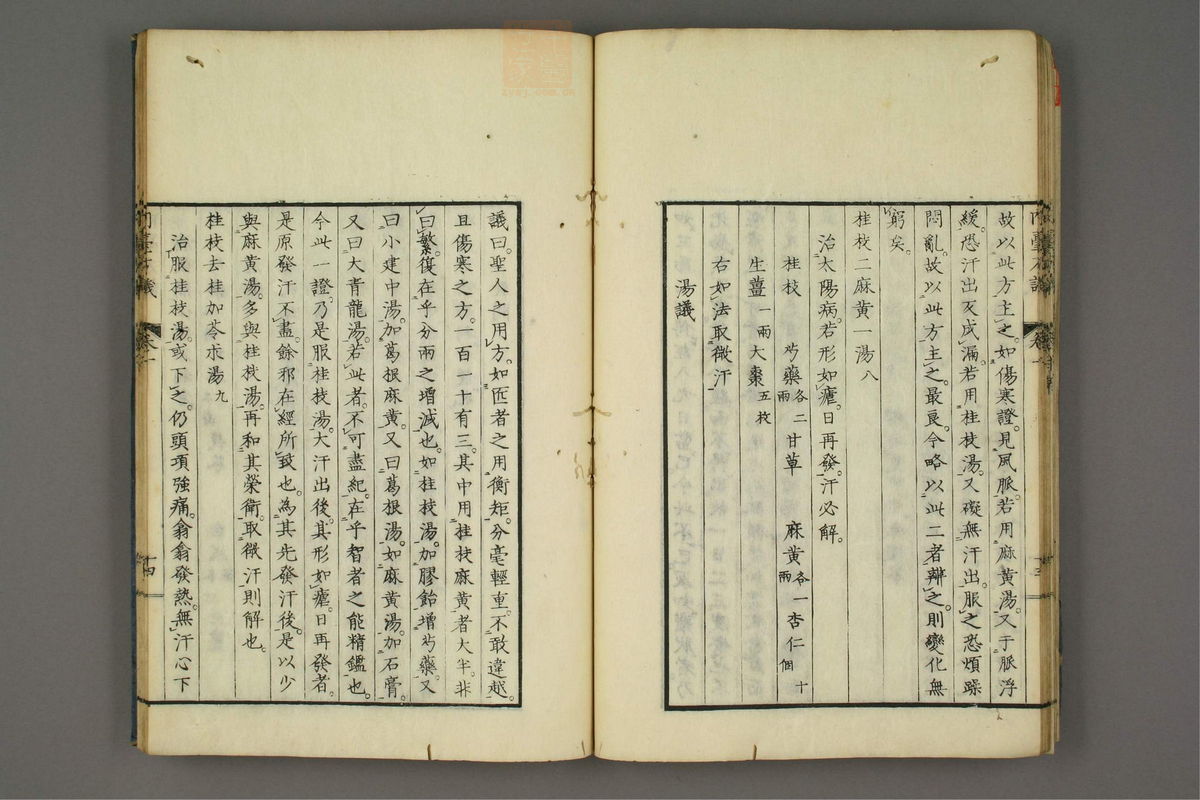 故以此方主之。如傷寒證。見風脈。若用麻黃湯。又于脈浮
緩。恐汗出反成漏。若用桂枝湯。又礙無汗出。服之恐煩躁
悶亂。故以此方主之。最良。今略以此二者辯之。則變化無
窮矣。
桂枝二麻黃一湯八
治太陽病。若形如瘧。日再發。汗必解。
桂枝 芍藥各二兩 甘草 麻黃各一兩 杏仁十個
生薑一兩 大棗五枚
右如法取微汗
湯議
議曰。聖人之用方。如匠者之用衡矩。分毫輕重。不敢違越。
且傷寒之方。一百一十有三。其中用桂枝麻黃者大半。非
曰繁。復在乎分兩之增減也。如桂枝湯。加膠飴增芍藥。又
曰小建中湯。加葛根麻黃。又曰葛根湯。如麻黃湯。加石膏。
又曰大青龍湯。若此者。不可盡紀。在乎智者之能精鑑也。
今此一證。乃是服桂枝湯。大汗出後。其形如瘧。日再發者。
是原發汗不盡。餘邪在經所致也。為其先發汗後。是以少
與麻黃湯。多與桂枝湯。再和其榮衛。取微汗則解也。
桂枝去桂加苓朮湯九
治服桂枝湯。或下之。仍頭項強痛。翕翕發熱。無汗心下